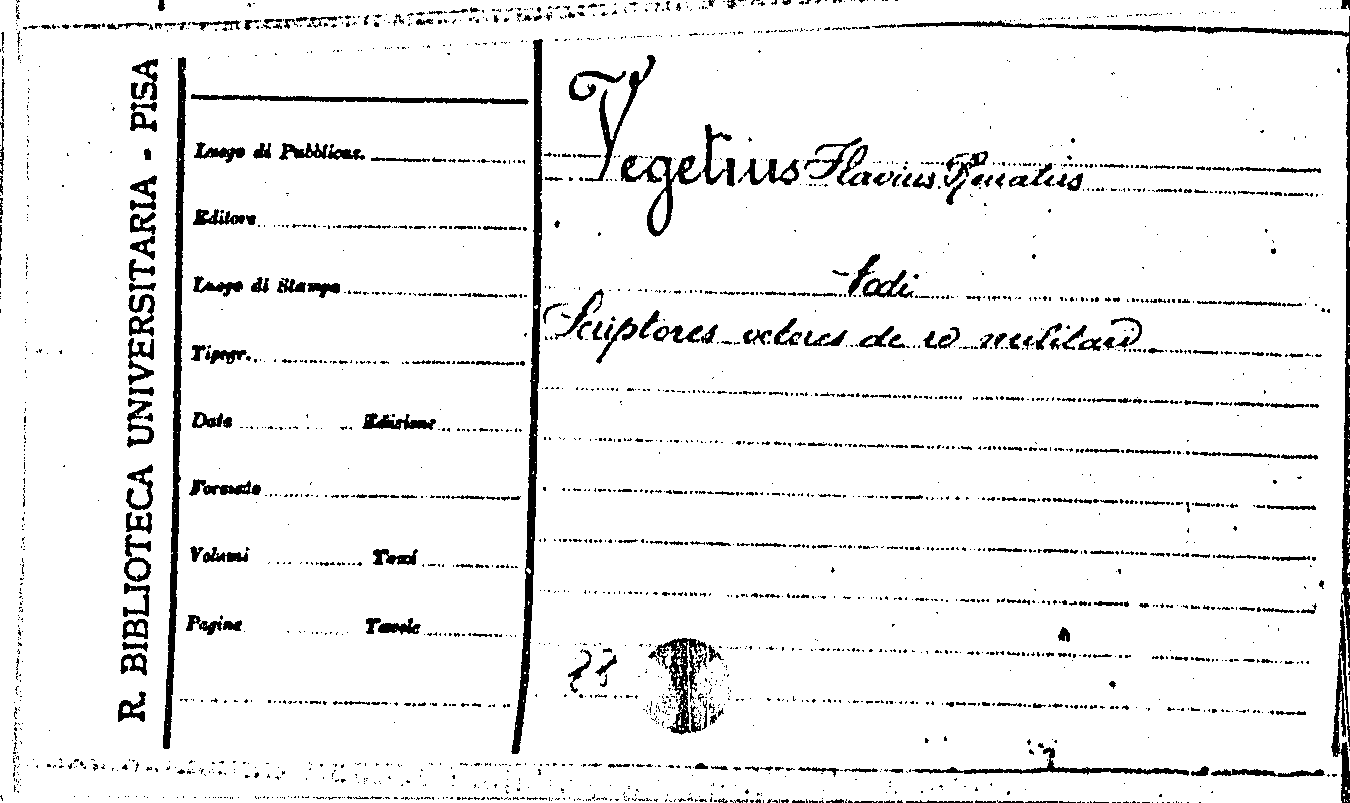 R. BIBLIOTECA UNIVERSITARIA - PISA
Luogo di Pubblicaz.
Editore
Luogo di Stampa
Tipogr.
Date Edizione
Formato
Volumi Tomi
Pagine Tavole
Vegetius Flavius Renatus
Vedi
Scriptores veteres de re militari